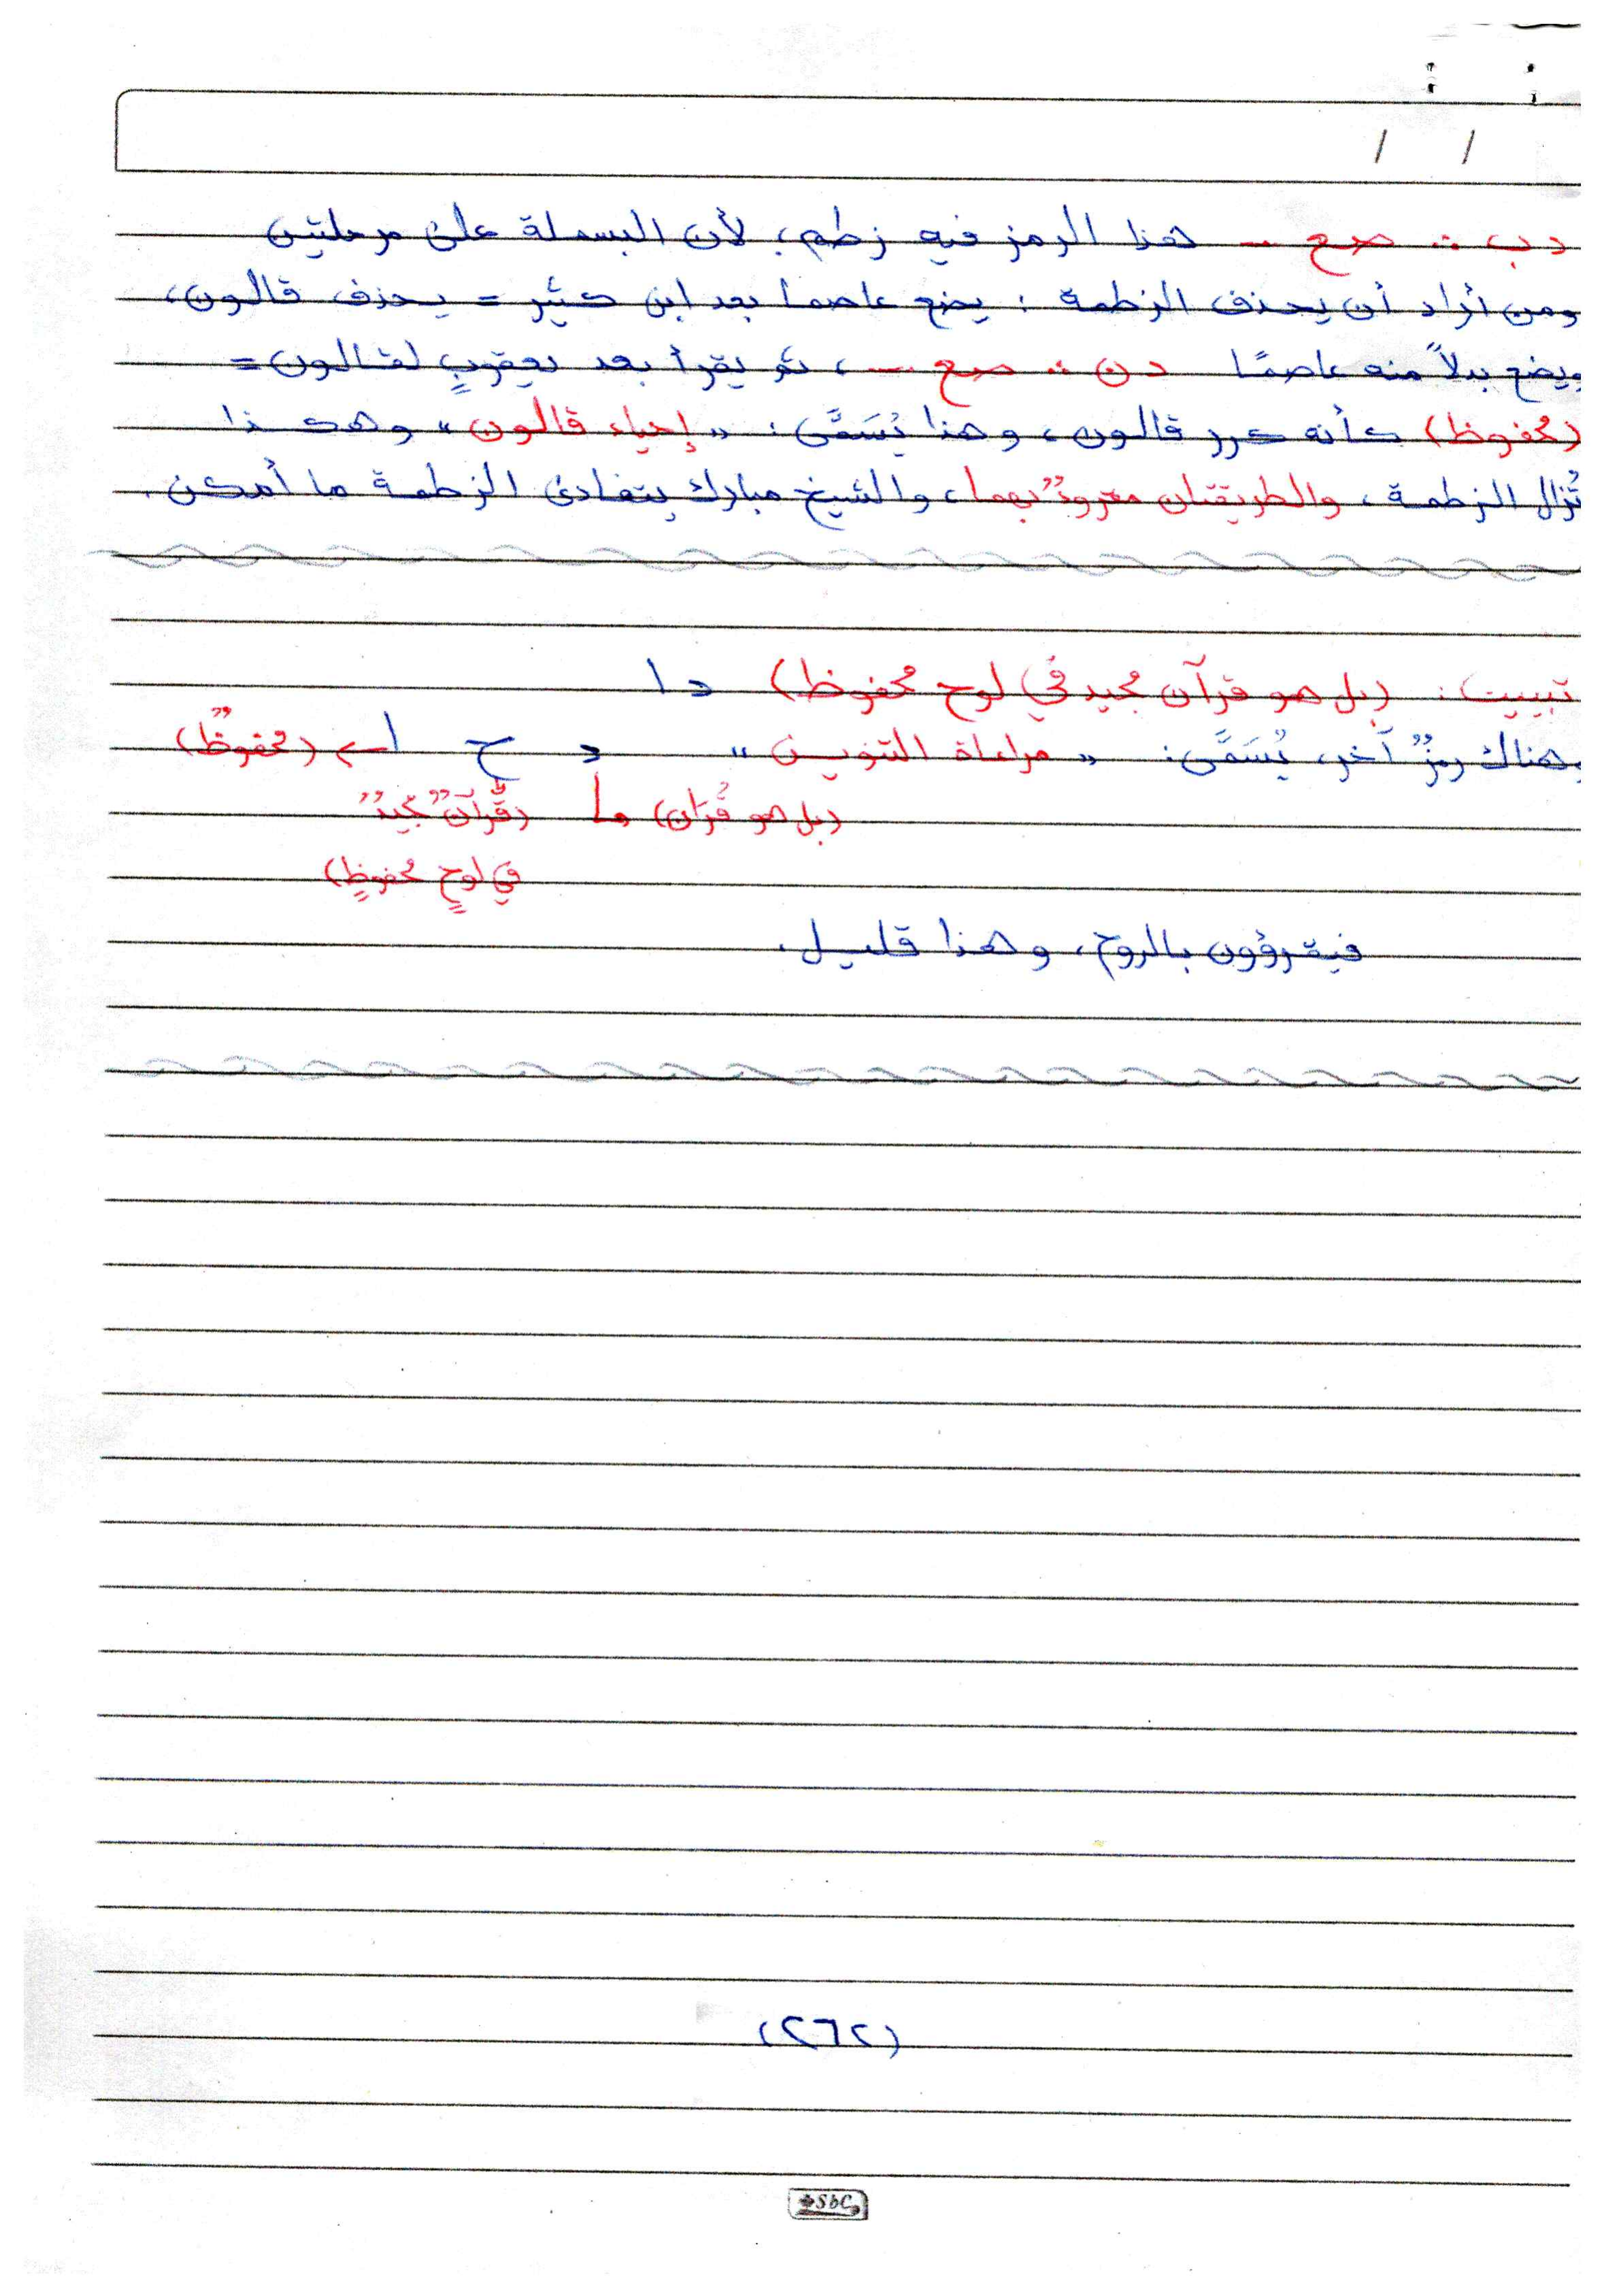 / /
د ب ∴ صع ـ هذا الرمز فيه زطم؛ لأن البسملة على مرحلتين
ومن أراد أن يحذف الزطمة: يضع عاصما بعد ابن كثير = يحذف قالون،
ويضع بدلاً منه عاصمًا د ن ∴ صع ـ، ثم يقرأ بعد يعقوب لقالون =
(محفوظ) كأنه كرر قالون، وهذا يُسَمَّى: «إحياء قالون» وهكذا
تُزال الزطمة، والطريقتان مقروءٌ بهما، والشيخ مبارك يتفادى الزطمة ما أمكن.
تبييت: (بل هو قرآن مجيد في لوح محفوظ) د ا
وهناك رمزٌ آخر، يُسَمَّى: «مراعاة التنوين» د ح ا ← (محفوظٌ)
(بل هو قُرَان) ما (قُرْآنٌ مجيدٌ
في لوحٍ محفوظٍ)
فيقرؤون بالروح، وهذا قليل.
(٢٦٢)
SbC